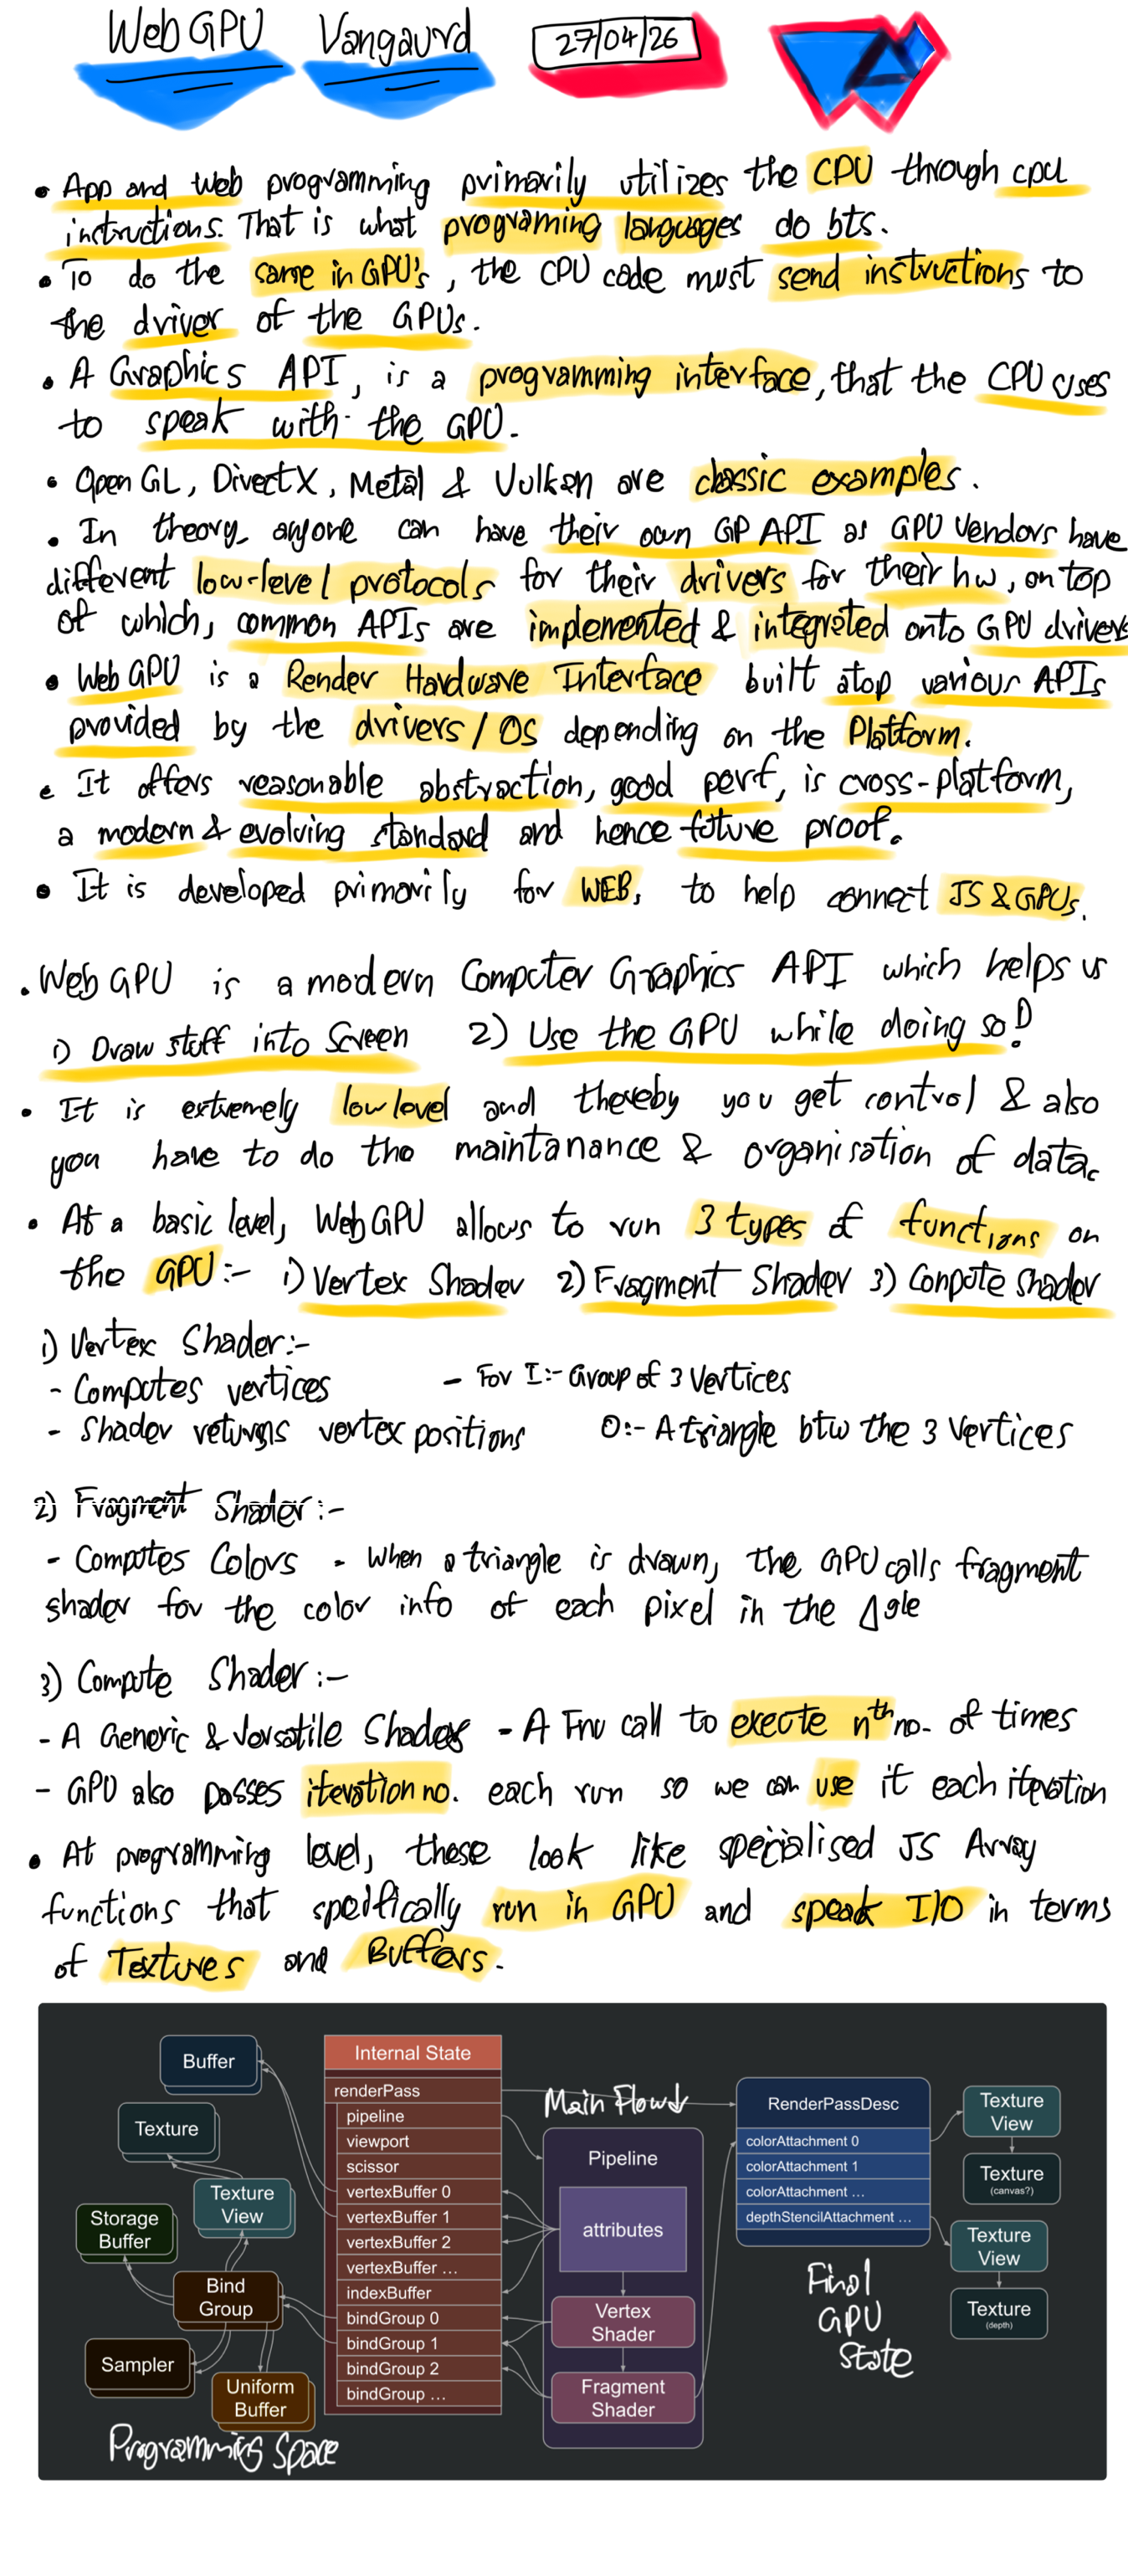 WebGPU Vangaurd 27/04/26
• App and Web programming primarily utilizes the CPU through cpu
instructions. That is what programing languages do bts.
• To do the same in GPU's, the CPU code must send instructions to
the driver of the GPUs.
• A Graphics API, is a programming interface, that the CPU uses
to speak with the GPU.
• Open GL, DirectX, Metal & Vulkan are classic examples.
• In theory, anyone can have their own GP API as GPU Vendors have
different low-level protocols for their drivers for their hw, on top
of which, common APIs are implemented & integrated onto GPU drivers
• Web GPU is a Render Hardware Interface built atop various APIs
provided by the drivers/OS depending on the Platform.
• It offers reasonable abstraction, good perf, is cross-platform,
a modern & evolving standard and hence future proof.
• It is developed primarily for WEB, to help connect JS & GPUs.
• Web GPU is a modern Computer Graphics API which helps us
1) Draw stuff into Screen 2) Use the GPU while doing so!
• It is extremely low level and thereby you get control & also
you have to do the maintanance & organisation of data.
• At a basic level, WebGPU allows to run 3 types of functions on
the GPU:- 1) Vertex Shader 2) Fragment Shader 3) Compute Shader
1) Vertex Shader:-
- Computes vertices - For I:- Group of 3 Vertices
- Shader returns vertex positions O:- A triangle btw the 3 Vertices
2) Fragment Shader:-
- Computes Colors - When a triangle is drawn, the GPU calls fragment
shader for the color info of each pixel in the Δgle
3) Compute Shader:-
- A Generic & Versatile Shader - A Fnu call to execute nth no. of times
- GPU also passes iteration no. each run so we can use it each iteration
• At programming level, these look like specialised JS Array
functions that specifically run in GPU and speak I/O in terms
of Textures and Buffers.
Buffer
Texture
Texture View
Storage Buffer
Bind Group
Sampler
Uniform Buffer
Programming Space
Internal State
renderPass
pipeline
viewport
scissor
vertexBuffer 0
vertexBuffer 1
vertexBuffer 2
vertexBuffer ...
indexBuffer
bindGroup 0
bindGroup 1
bindGroup 2
bindGroup ...
Main Flow
Pipeline
attributes
Vertex Shader
Fragment Shader
RenderPassDesc
colorAttachment 0
colorAttachment 1
colorAttachment ...
depthStencilAttachment ...
Final
GPU
State
Texture View
Texture
(canvas?)
Texture View
Texture
(depth)